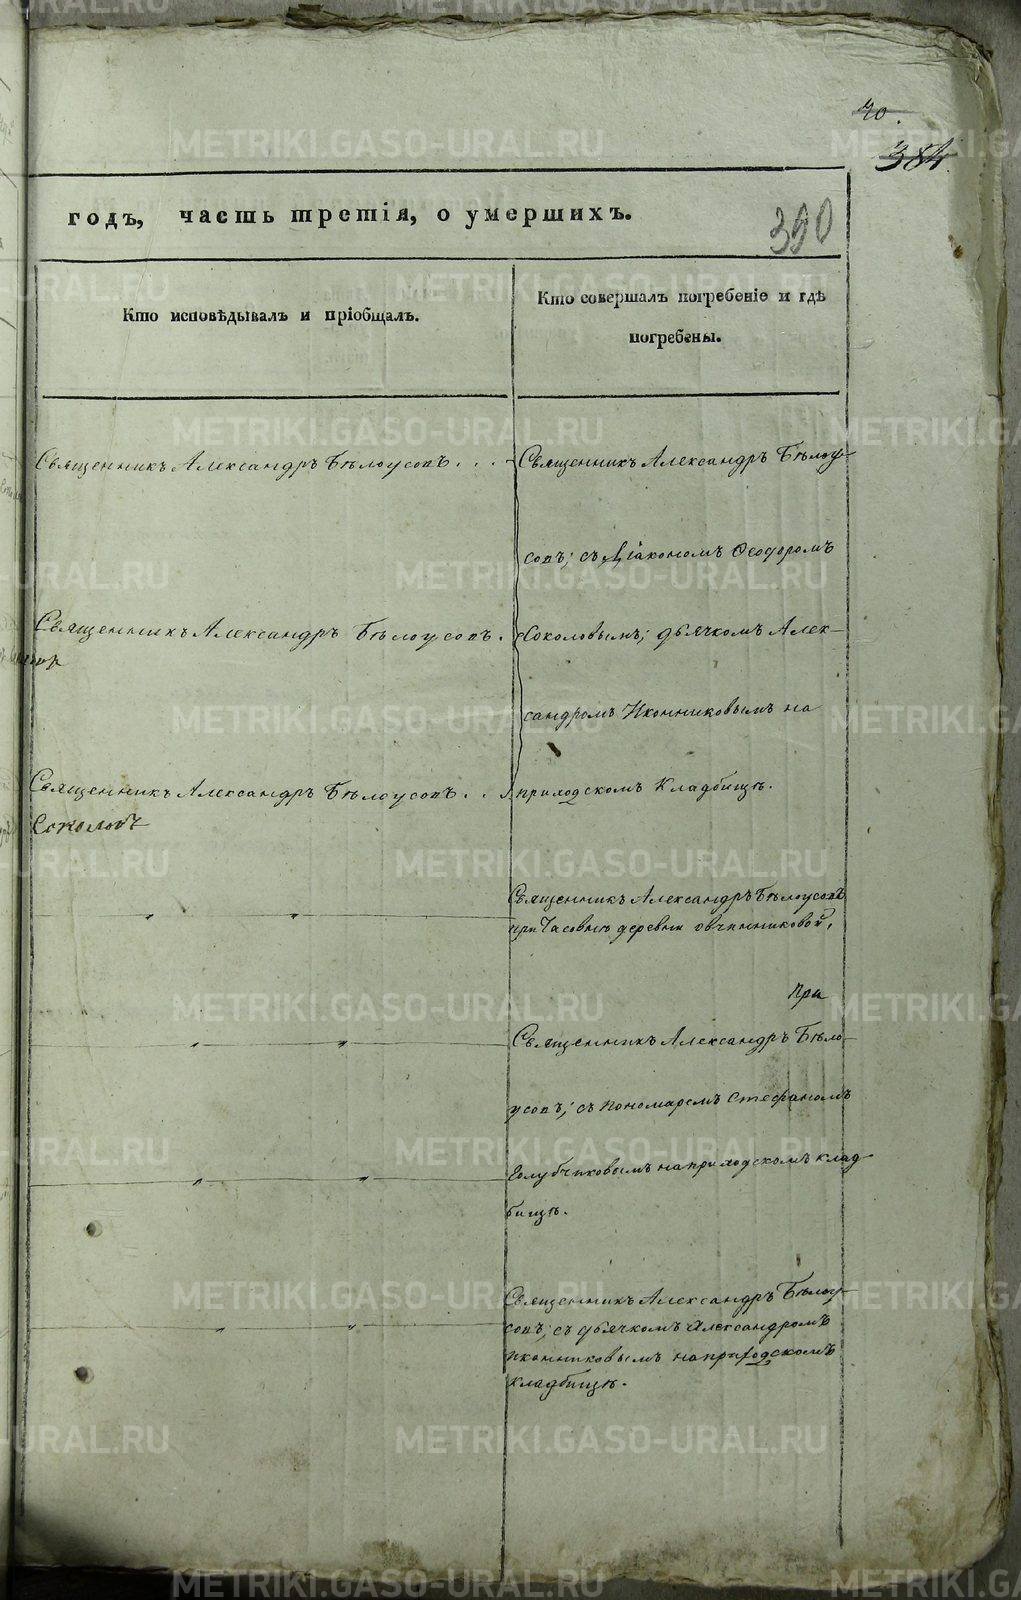 70.
384.
годъ, часть третія, о умершихъ.
390
Кто исповѣдывалъ и пріобщалъ.
Кто совершалъ погребеніе и гдѣ
погребены.
Священникъ Александръ Бѣлоусовъ. . . .
Священникъ Александръ Бѣлоу-
совъ; съ Діакономъ Ѳеодоромъ
Священникъ Александръ Бѣлоусовъ.
Соколовымъ; дьячкомъ Алек-
сандромъ Иконниковымъ на
Священникъ Александръ Бѣлоусовъ. . .
приходскомъ Кладбищѣ.
Соколовъ
Священникъ Александръ Бѣлоусовъ
при Часовнѣ деревни Овчинниковой,
при
Священникъ Александръ Бѣло-
усовъ; съ Пономаремъ Стефаномъ
Голубчиковымъ на приходскомъ клад-
бищѣ.
Священникъ Александръ Бѣлоу-
совъ; съ дьячкомъ Александромъ
Иконниковымъ на приходскомъ
кладбищѣ.
METRIKI.GASO-URAL.RU